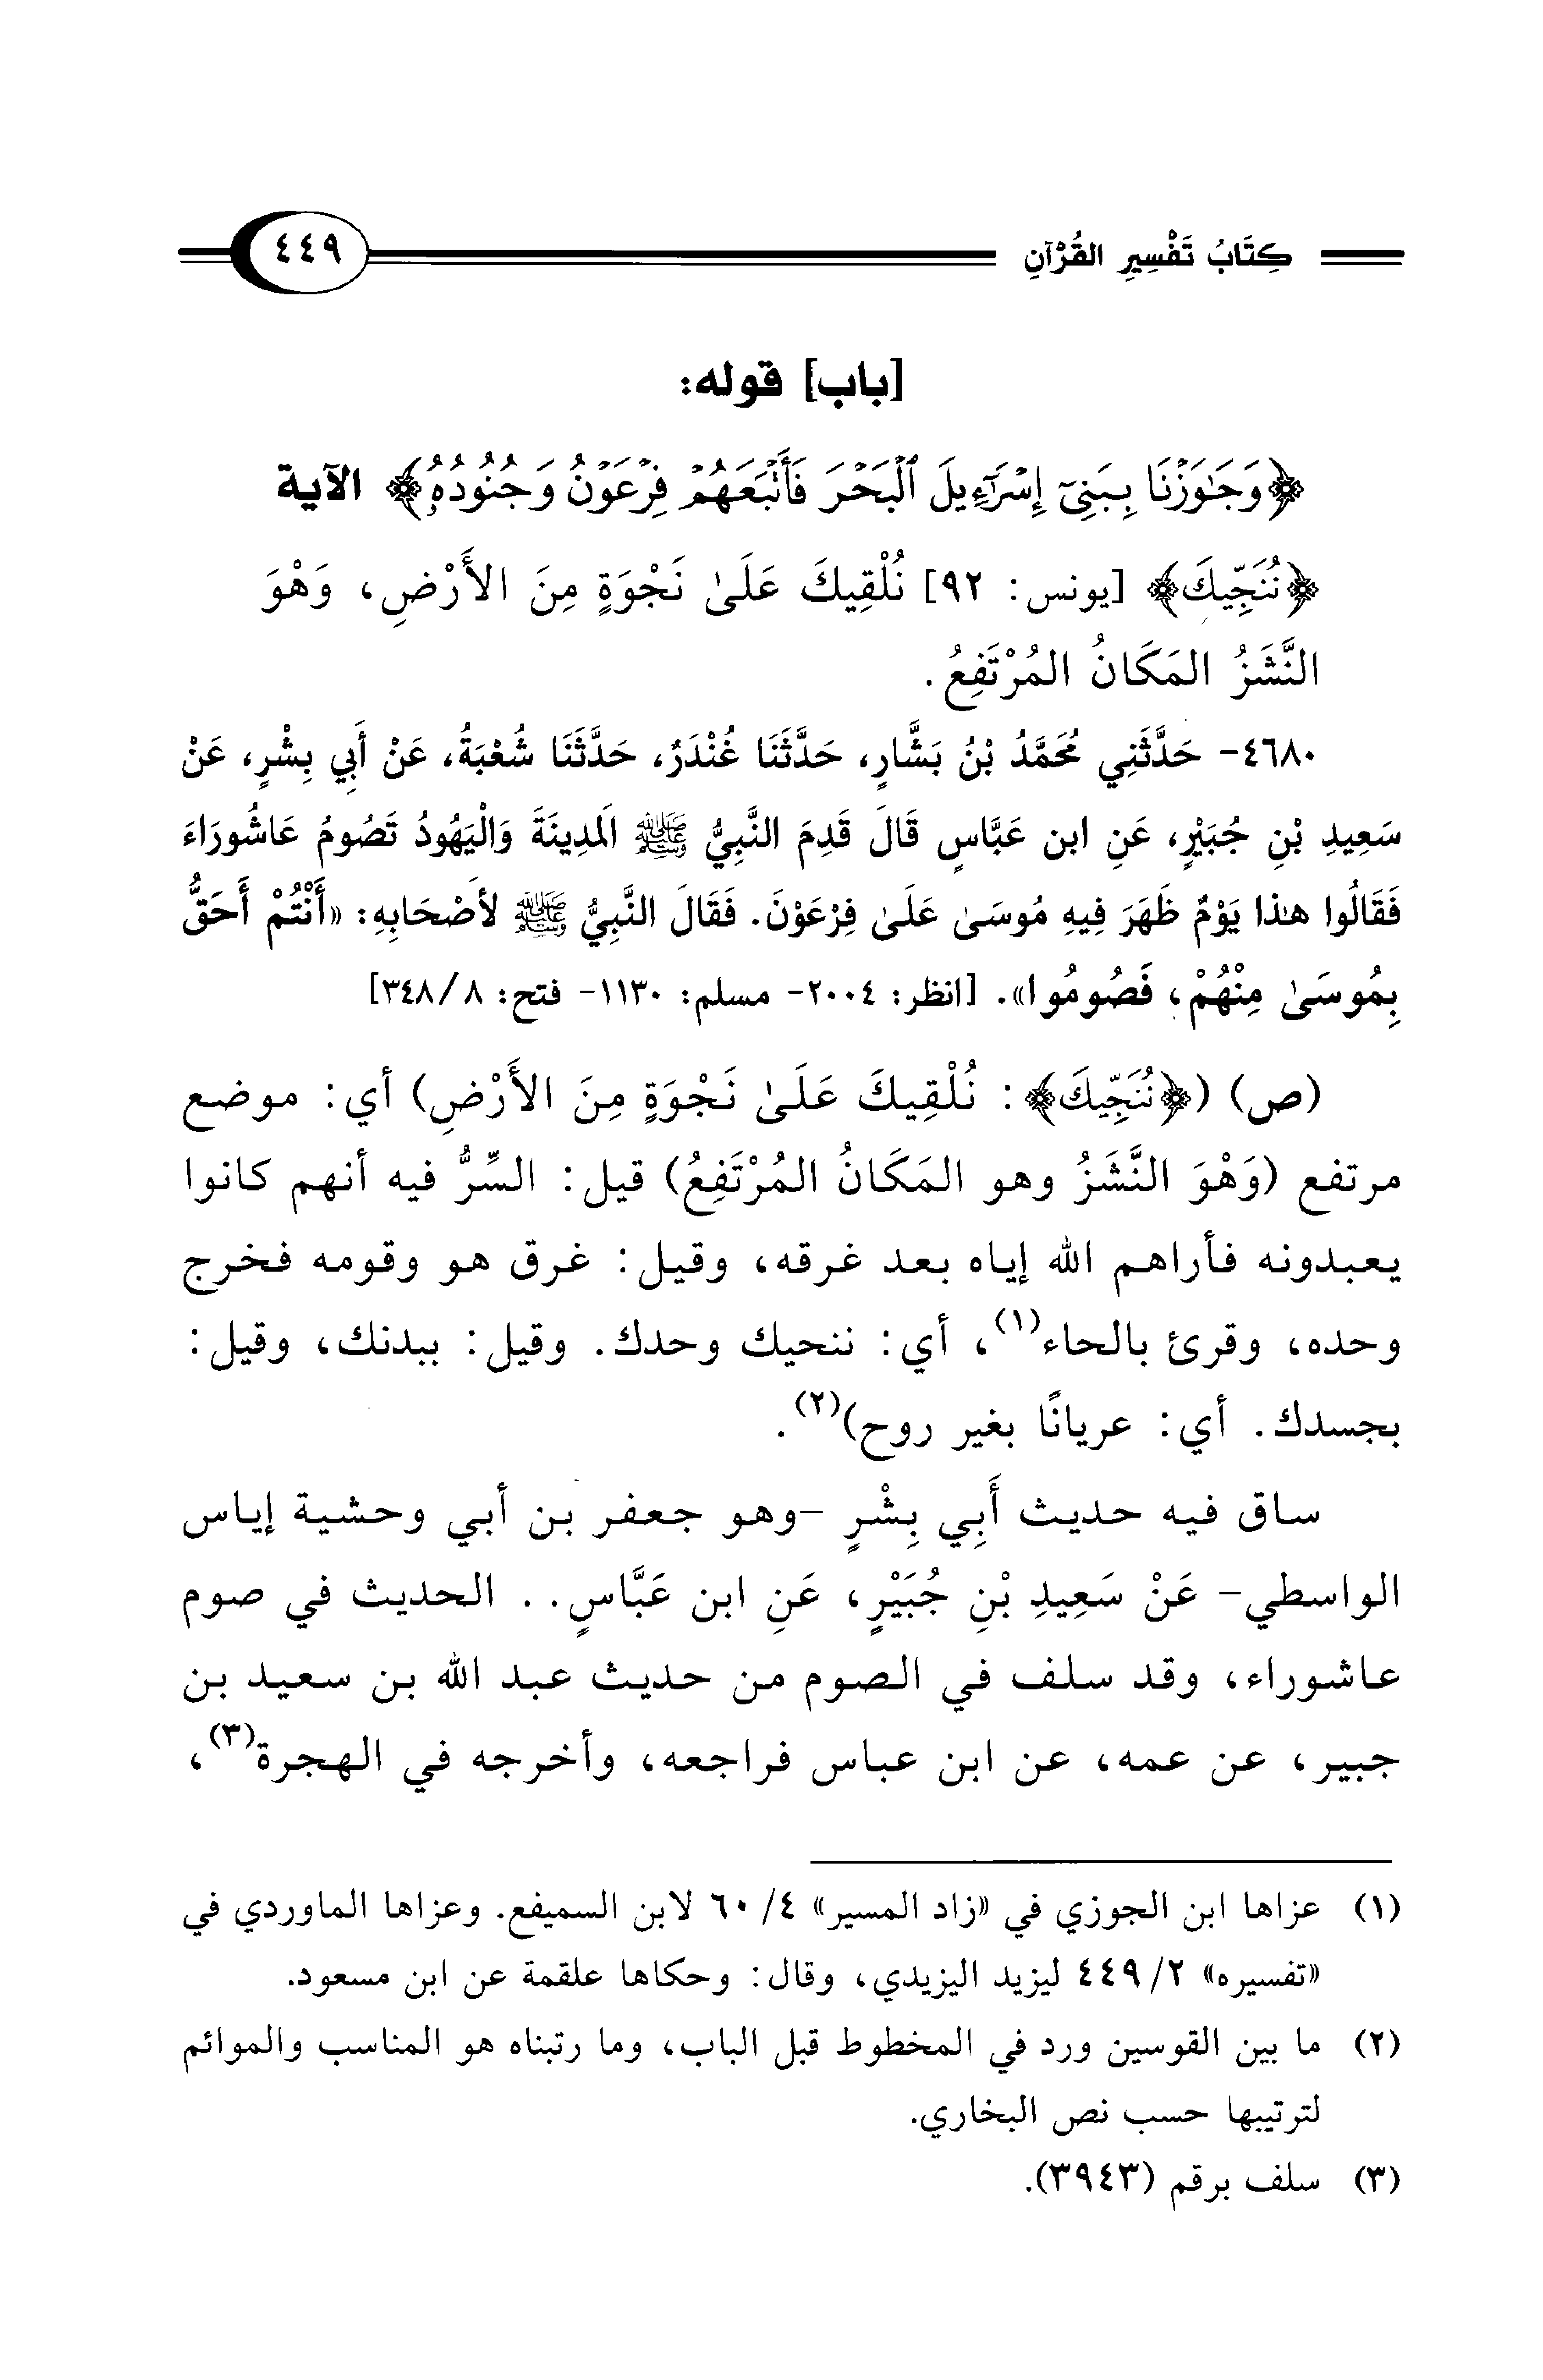 كِتَابُ تَفْسِيرِ القُرْآنِ ٤٤٩
[باب] قوله:
﴿وَجَٰوَزْنَا بِبَنِىٓ إِسْرَٰٓءِيلَ ٱلْبَحْرَ فَأَتْبَعَهُمْ فِرْعَوْنُ وَجُنُودُهُۥ﴾ الآية
﴿نُنَجِّيكَ﴾ [يونس: ٩٢] نُلْقِيكَ عَلَىٰ نَجْوَةٍ مِنَ الأَرْضِ، وَهْوَ
النَّشَزُ المَكَانُ المُرْتَفِعُ.
٤٦٨٠- حَدَّثَنِي مُحَمَّدُ بْنُ بَشَّارٍ، حَدَّثَنَا غُنْدَرٌ، حَدَّثَنَا شُعْبَةُ، عَنْ أَبِي بِشْرٍ، عَنْ
سَعِيدِ بْنِ جُبَيْرٍ، عَنِ ابن عَبَّاسٍ قَالَ قَدِمَ النَّبِيُّ ﷺ المَدِينَةَ وَالْيَهُودُ تَصُومُ عَاشُورَاءَ
فَقَالُوا هذا يَوْمٌ ظَهَرَ فِيهِ مُوسَىٰ عَلَىٰ فِرْعَوْنَ. فَقَالَ النَّبِيُّ ﷺ لأَصْحَابِهِ: «أَنْتُمْ أَحَقُّ
بِمُوسَىٰ مِنْهُمْ، فَصُومُوا». [انظر: ٢٠٠٤- مسلم: ١١٣٠- فتح: ٣٤٨/٨]
(ص) (﴿نُنَجِّيكَ﴾: نُلْقِيكَ عَلَىٰ نَجْوَةٍ مِنَ الأَرْضِ) أي: موضع
مرتفع (وَهْوَ النَّشَزُ وهو المَكَانُ المُرْتَفِعُ) قيل: السِّرُّ فيه أنهم كانوا
يعبدونه فأراهم الله إياه بعد غرقه، وقيل: غرق هو وقومه فخرج
وحده، وقرئ بالحاء(١)، أي: ننحيك وحدك. وقيل: ببدنك، وقيل:
بجسدك. أي: عريانًا بغير روح)(٢).
ساق فيه حديث أَبِي بِشْرٍ -وهو جعفر بن أبي وحشية إياس
الواسطي- عَنْ سَعِيدِ بْنِ جُبَيْرٍ، عَنِ ابن عَبَّاسٍ.. الحديث في صوم
عاشوراء، وقد سلف في الصوم من حديث عبد الله بن سعيد بن
جبير، عن عمه، عن ابن عباس فراجعه، وأخرجه في الهجرة(٣)،
(١) عزاها ابن الجوزي في «زاد المسير» ٤/ ٦٠ لابن السميفع. وعزاها الماوردي في
«تفسيره» ٢/ ٤٤٩ ليزيد اليزيدي، وقال: وحكاها علقمة عن ابن مسعود.
(٢) ما بين القوسين ورد في المخطوط قبل الباب، وما رتبناه هو المناسب والموائم
لترتيبها حسب نص البخاري.
(٣) سلف برقم (٣٩٤٣).